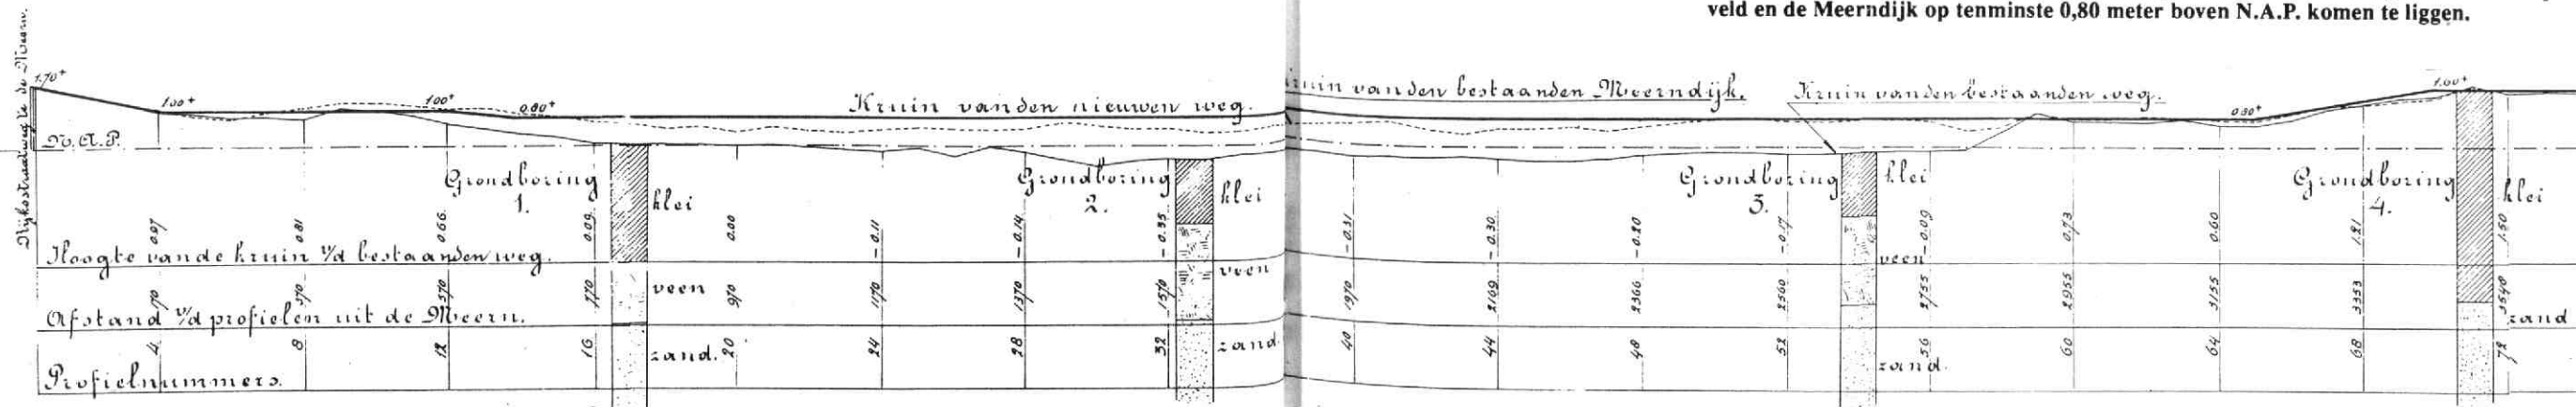 veld en de Meerndijk op tenminste 0,80 meter boven N.A.P. komen te liggen.
Rijksstraatweg te de Meern.
1.70+
1.00+
1.00+
0.80+
Kruin van den nieuwen weg.
van den bestaanden Meerndijk.
Kruin van den bestaanden weg.
0.80+
1.00+
N.A.P.
Grondboring 1.
klei
veen
zand.
Grondboring 2.
klei
veen
zand
Grondboring 3.
klei
veen
zand.
Grondboring 4.
klei
zand
Hoogte van de kruin v/d bestaanden weg.
0.97 0.81 0.66 0.09 0.00 -0.11 -0.14 -0.35 -0.31 -0.30 -0.20 -0.17 -0.09 0.73 0.60 1.21 1.50
Afstand v/d profielen uit de Meern.
170 370 570 770 970 1170 1370 1570 1970 2169 2366 2560 2755 2955 3155 3353 3540
Profielnummers.
4 8 12 16 20 24 28 32 40 44 48 52 56 60 64 68 72